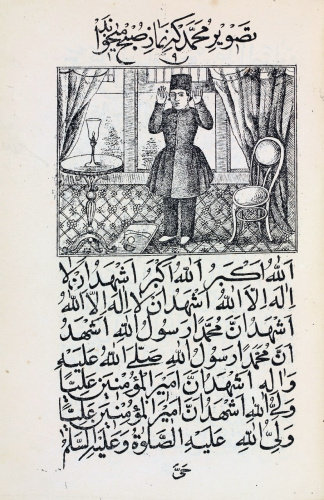 تصویر محمد که نماز صبح میخواند
۹
اَللّٰهُ اَكْبَرُ اَللّٰهُ اَكْبَرُ اَشْهَدُ اَنْ لا
اِلهَ اِلَّا اللّٰهُ اَشْهَدُ اَنْ لا اِلهَ اِلَّا اللّٰهُ
اَشْهَدُ اَنَّ مُحَمَّدًا رَسُولُ اللّٰهِ اَشْهَدُ
اَنَّ مُحَمَّدًا رَسُولُ اللّٰهِ صَلَّى اللّٰهُ عَلَيْهِ
وَالِهِ اَشْهَدُ اَنَّ اَمِيرَ الْمُؤْمِنِينَ عَلِيًّا
وَلِيُّ اللّٰهِ اَشْهَدُ اَنَّ اَمِيرَ الْمُؤْمِنِينَ عَلِيًّا
وَلِيُّ اللّٰهِ عَلَيْهِ الصَّلٰوةُ وَعَلَيْهِ السَّلٰمُ
حَىَّ